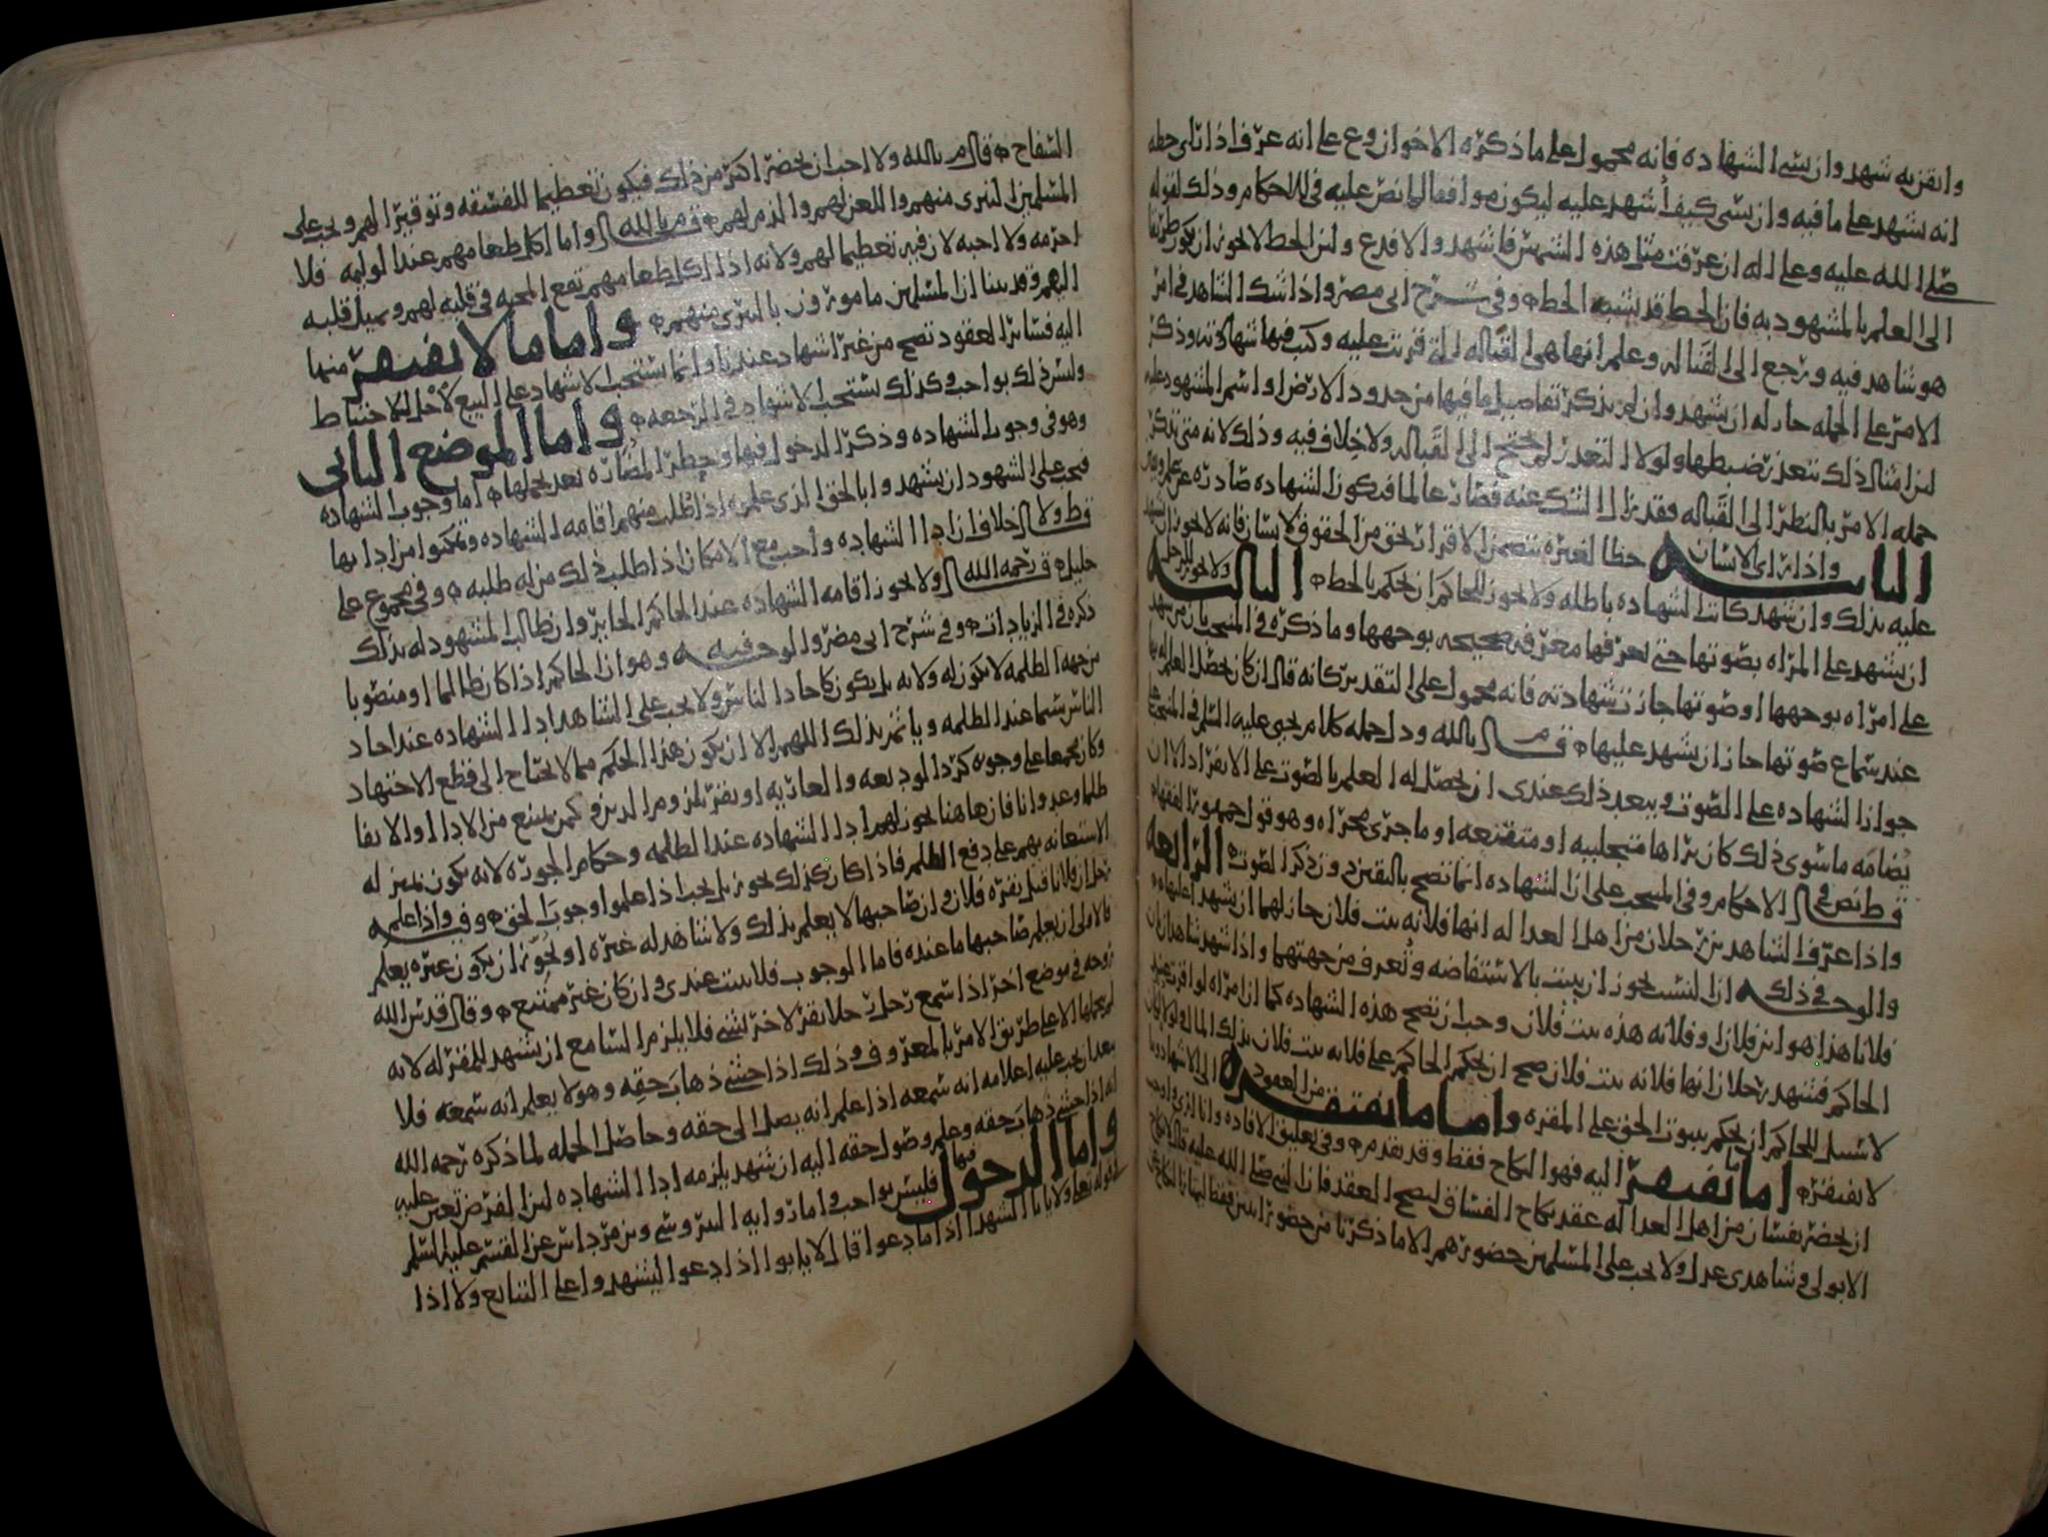 وانقزبه شهد وان نسي الشهاده فانه محمول على ماذكره الاخوان وع على انه عرف اذا تاى خطه
انه شهد على ما فيه وان نسي كيف أشهد عليه ليكون موافقا لما نص عليه في الاحكام وذلك لقوله
صلى الله عليه وعلى اله ان عرفت مثل هذه الشمس فاشهد والا فدع ولان الخط لا يجوز ان يكون طريقا
الى العلم بالمشهود به فان الخط قد يشبه الخط وفي شرح ابي مضر واذا شك الشاهد في امر
هو شاهد فيه ورجع الى القباله وعلم انها هي القباله التي قرئت عليه وكتب فيها شهادته وذكر
الامر على الجمله جاز له ان يشهد وان لم يذكر تفاصيل ما فيها من حدود الارض واسم المشهود عليه
لان امثال ذلك يتعذر ضبطها ولولا التعذر لم يحتج الى القباله ولا خلاف فيه وذلك لانه متى تذكر
جمله الامر بالنظر الى القباله فقد زال الشك عنه فصار عالما فيكون الشهاده صادره عن علم
الثانيه واذا راى الانسان خطا لغيره يتضمن الاقرار بحق من الحقوق لانسان فانه لا يجوز ان يشهد
عليه بذلك وان شهد كانت الشهاده باطله ولا يجوز للحاكم ان يحكم بالخط الثالثه ولا يجوز للرجل
ان يشهد على المراه بصوتها حتى يعرفها معرفه صحيحه بوجهها وما ذكره في المنتخب
على امراه بوجهها او صوتها جازت شهادته فانه محمول على التقدير كانه قال ان كان يحصل العلم له بها
عند سماع صوتها جاز ان يشهد عليها قال م بالله ودل جمله كلام يحيى عليه السلم في المنتخب على
جواز الشهاده على الصوت ويبعد ذلك عندي ان يحصل له العلم بالصوت على الانفراد الا ان
يضامه ما سوى ذلك كان يراها متجلببه او متقنعه او ما جرى مجراه وهو قول جمهور الفقهاء
قط نص في الاحكام وفي المنتخب على ان الشهاده انما تصح باليقين دون ذكر الصوت الرابعه
واذا عرف الشاهدين رجلان من اهل العداله انها فلانه بنت فلان جاز لهما ان يشهدا عليها
والوجه في ذلك ان النسب يجوز ان يثبت بالاستفاضه وتعرف من جهتهما واذا شهد شاهدان بان
فلانا هذا هو ابن فلان او فلانه هذه بنت فلان وجب ان تصح هذه الشهاده كما ان امراه لو اقرت عند
الحاكم فشهد رجلان انها فلانه بنت فلان صح ان يحكم الحاكم على فلانه بنت فلان بذلك المال
لا سبيل للحاكم ان يحكم بثبوت الحق على المقره واما ما يفتقر من العقود الى الاشهاد وما
لا يفتقر اما ما يفتقر اليه فهو النكاح فقط وقد تقدم وفي تعليق الافاده
ان يحضر نفسان من اهل العداله عقد نكاح الفساق ليصح العقد فان النبي صلى الله عليه قال لا نكاح
الا بولي وشاهدي عدل ولا يجب على المسلمين حضورهم الا ما ذكرنا من حضور اثنين فقط
السفاح قال م بالله ولا احب ان يحضر اكثر من ذلك فيكون تعظيما للفسقه وتوقيرا لهم ويجب على
المسلمين التبري منهم واللعن لهم والذم لهم قال م بالله واما اكل طعامهم عند الوليمه فلا
احرمه ولا احبه لان فيه تعظيما لهم ولانه اذا اكل طعامهم تقع المحبه في قلبه لهم ويميل قلبه
اليهم وقد بينا ان المسلمين مامورون بالتبري منهم واما ما لا يفتقر منها
اليه فسائر العقود تصح من غير اشهاد عندنا وانما يستحب الاشهاد على البيع لاجل الاحتياط
وليس ذلك بواجب وكذلك يستحب الاشهاد في الرجعه واما الموضع الثاني
وهو في وجوب الشهاده وذكر الدخول فيها وحظر المضاره بعد تحملها اما وجوب الشهاده
فيجب على الشهود ان يشهدوا بالحق الذي علموه اذا طلب منهم اقامه الشهاده وتمكنوا من ادائها
قط ولا خلاف ان اداء الشهاده واجب مع الامكان اذا طلب ذلك من له طلبه وفي مجموع على
خليل رحمه الله ولا يجوز اقامه الشهاده عند الحاكم الجائر وان طالب المشهود له بذلك
ذكره في الزيادات وفي شرح ابي مضر والوجه فيه وهو ان الحاكم اذا كان ظالما او منصوبا
من جهه الظلمه لا يكون له ولايه بل يكون كاحاد الناس ولا يجب على الشاهد اداء الشهاده عند احاد
الناس سيما عند الظلمه وياثم بذلك اللهم الا ان يكون هذا الحكم مما لا يحتاج الى قطع الاجتهاد
وكان مجمعا على وجوبه كرد الوديعه والعاريه او بفتر يلزم الدين وكمن يمتنع من الاداء والايفا
ظلما وعدوانا فان هاهنا يجوز لهم اداء الشهاده عند الظلمه وحكام الجوره لانه يكون بمنزله
الاستعانه بهم على دفع الظلم فاذا كان كذلك يجوز بل يجب اذا علموا وجوب الحق وفي واذا علم
رجل ان فلانا قبل بقره فلان وان صاحبها لا يعلم بذلك ولا شاهد له غيره او يجوز ان يكون غيره يعلم
فالاولى ان يعلم صاحبها ما عنده فاما الوجوب فلا يثبت عندي وان كان غير ممتنع وقال قدس الله
روحه في موضع اخر اذا سمع رجل رجلا يقر لاخر بشي فلا يلزم السامع ان يشهد للمقر له لانه
لم يحملها الا على طريق الامر بالمعروف وذلك اذا خشي ذهاب حقه وهو لا يعلم انه سمعه فلا
بعد ان يجب عليه اعلامه انه سمعه اذا علم انه يصل الى حقه وحاصل الجمله لما ذكره رحمه الله
انه اذا خشي ذهاب حقه وعلم وصول حقه اليه ان شهد يلزمه اداء الشهاده لان الفرض تعين عليه
واما الدخول فيها فليس بواجب واما روايه النيروسي وبن فرداس عن القسم عليه السلم
لقوله تعلى ولا ياب الشهدا اذا ما دعوا قال لا يابوا اذا دعوا ليشهدوا على التبايع ولا اذا